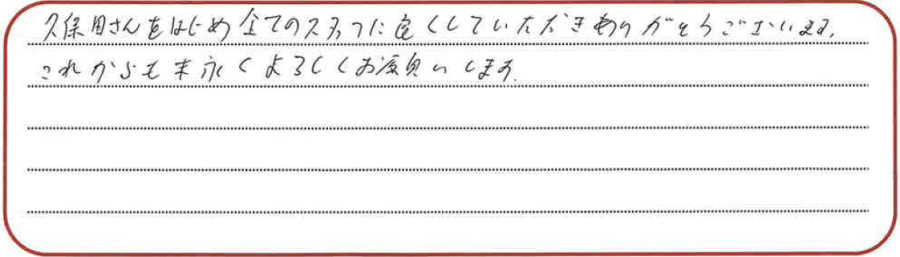 久保田さんをはじめ全てのスタッフに良くしていただきありがとうございます。
これからも末永くよろしくお願いします。